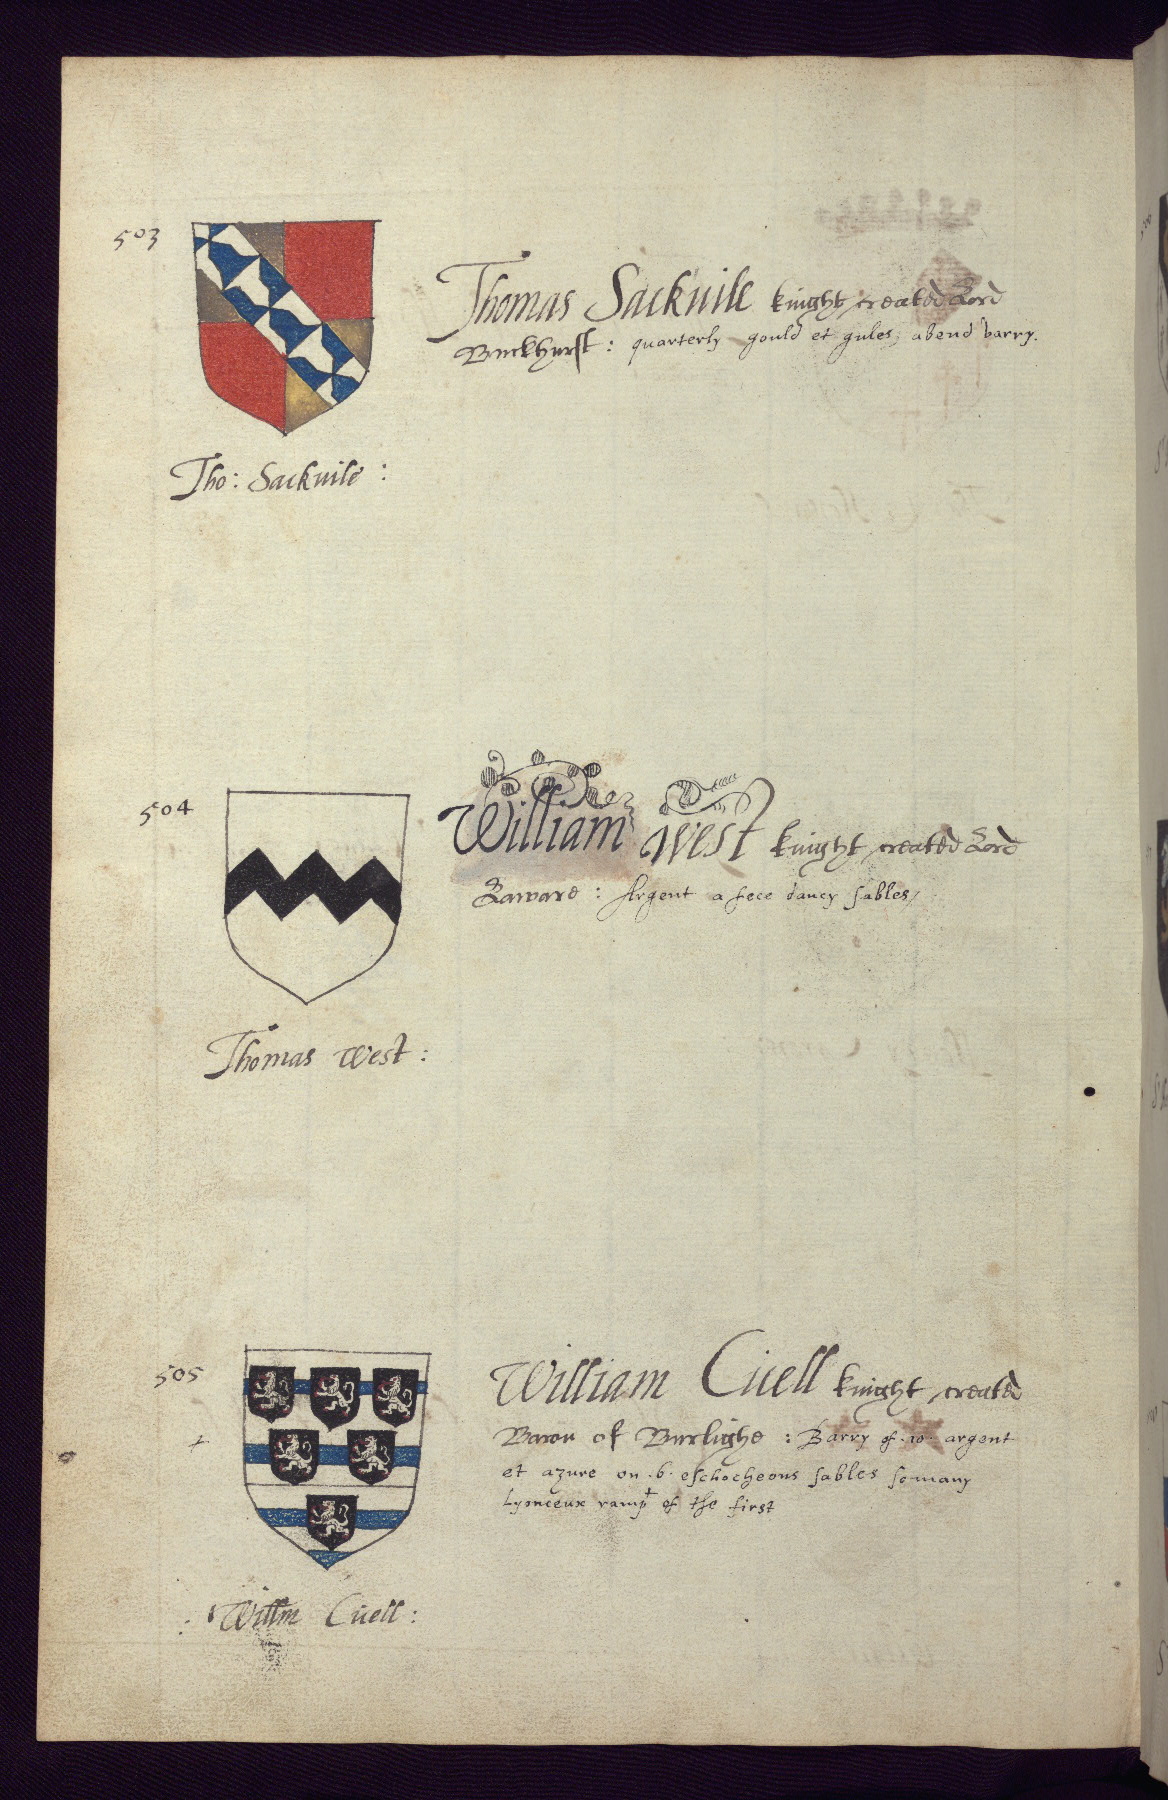 503
Thomas Sackuile knight created Lord
Buckhurst : quarterly gould et gules, abend varry.
Tho: Sackuile :
504
William West knight created Lord
Laware : Argent a fece dancy sables,
Thomas West :
505
William Ciiell knight created
+
Baron of Burlighe : Barry of .10. argent
et azure on .6. eschocheons sables so many
Lyonceux ramp^t of the first
: Willm Ciiell :